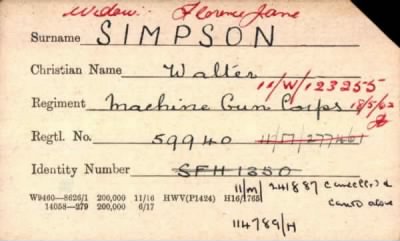 Widow: Florence Jane
Surname SIMPSON
Christian Name Walter
11/W/123255
Regiment Machine Gun Corps 18/5/62
Regtl. No. 59940
Identity Number SFH 1350
11/M/ 241887 Cancelled &
W9460—8626/1 200,000 11/16 HWV(P1424) H16/1765
Card above
14058—279 200,000 6/17
114789/H